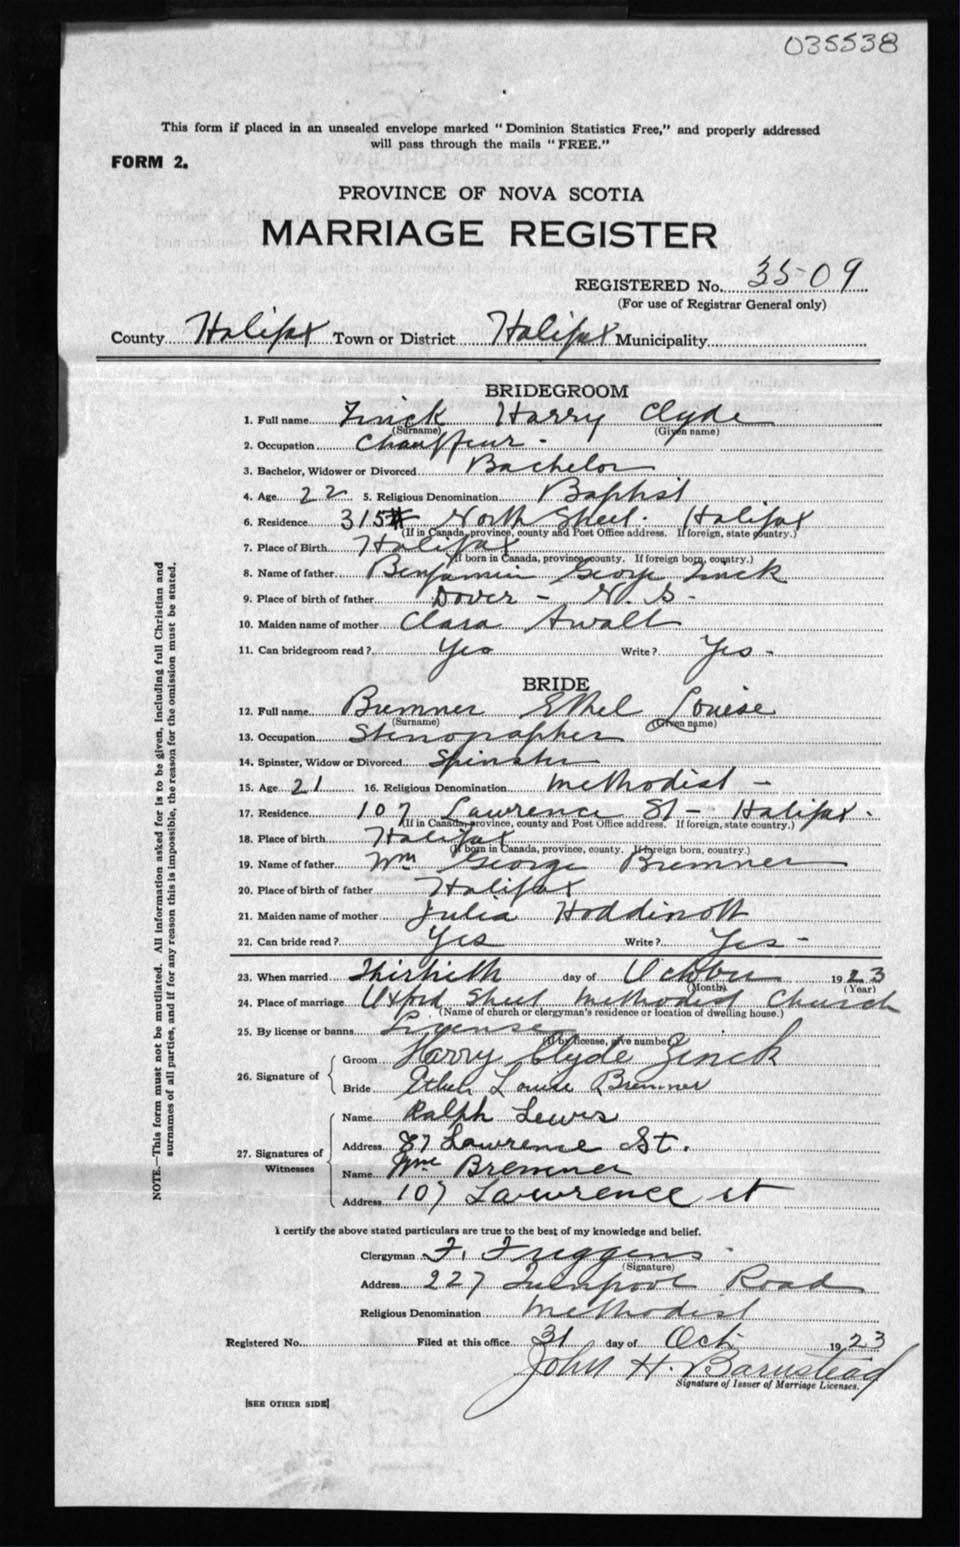 035538
This form if placed in an unsealed envelope marked "Dominion Statistics Free," and properly addressed
will pass through the mails "FREE."
FORM 2.
PROVINCE OF NOVA SCOTIA
MARRIAGE REGISTER
REGISTERED No. 3509
(For use of Registrar General only)
County Halifax Town or District Halifax Municipality
BRIDEGROOM
1. Full name Zinck Harry Clyde
(Surname) (Given name)
2. Occupation Chauffeur -
3. Bachelor, Widower or Divorced Bachelor
4. Age 22 5. Religious Denomination Baptist
6. Residence 315 North Street. Halifax
(If in Canada, province, county and Post Office address. If foreign, state country.)
7. Place of Birth Halifax
(If born in Canada, province, county. If foreign born, country.)
8. Name of father Benjamin George Zinck
9. Place of birth of father Dover - N. S -
10. Maiden name of mother Clara Awalt
11. Can bridegroom read? Yes Write? Yes -
BRIDE
12. Full name Bremner Ethel Louise
(Surname) (Given name)
13. Occupation Stenographer
14. Spinster, Widow or Divorced Spinster
15. Age 21 16. Religious Denomination Methodist -
17. Residence 107 Lawrence St - Halifax -
(If in Canada, province, county and Post Office address. If foreign, state country.)
18. Place of birth Halifax
(If born in Canada, province, county. If foreign born, country.)
19. Name of father Wm George Bremner
20. Place of birth of father Halifax
21. Maiden name of mother Julia Hoddinott
22. Can bride read? Yes Write? Yes -
23. When married Thirtieth day of October 1923
(Month) (Year)
24. Place of marriage Oxford Street Methodist Church
(Name of church or clergyman's residence or location of dwelling house.)
25. By license or banns License
(If by license, give number)
26. Signature of
Groom Harry Clyde Zinck
Bride Ethel Louise Bremner
27. Signatures of Witnesses
Name Ralph Lewis
Address 87 Lawrence St.
Name Wm Bremner
Address 107 Lawrence st
I certify the above stated particulars are true to the best of my knowledge and belief.
Clergyman F. Friggens
(Signature)
Address 227 Road
Religious Denomination Methodist
Registered No. Filed at this office 31 day of Oct. 1923
John H. Barnstead
Signature of Issuer of Marriage Licenses.
[SEE OTHER SIDE]
NOTE.—This form must not be mutilated. All information asked for is to be given, including full Christian and
surnames of all parties, and if for any reason this is impossible, the reason for the omission must be stated.